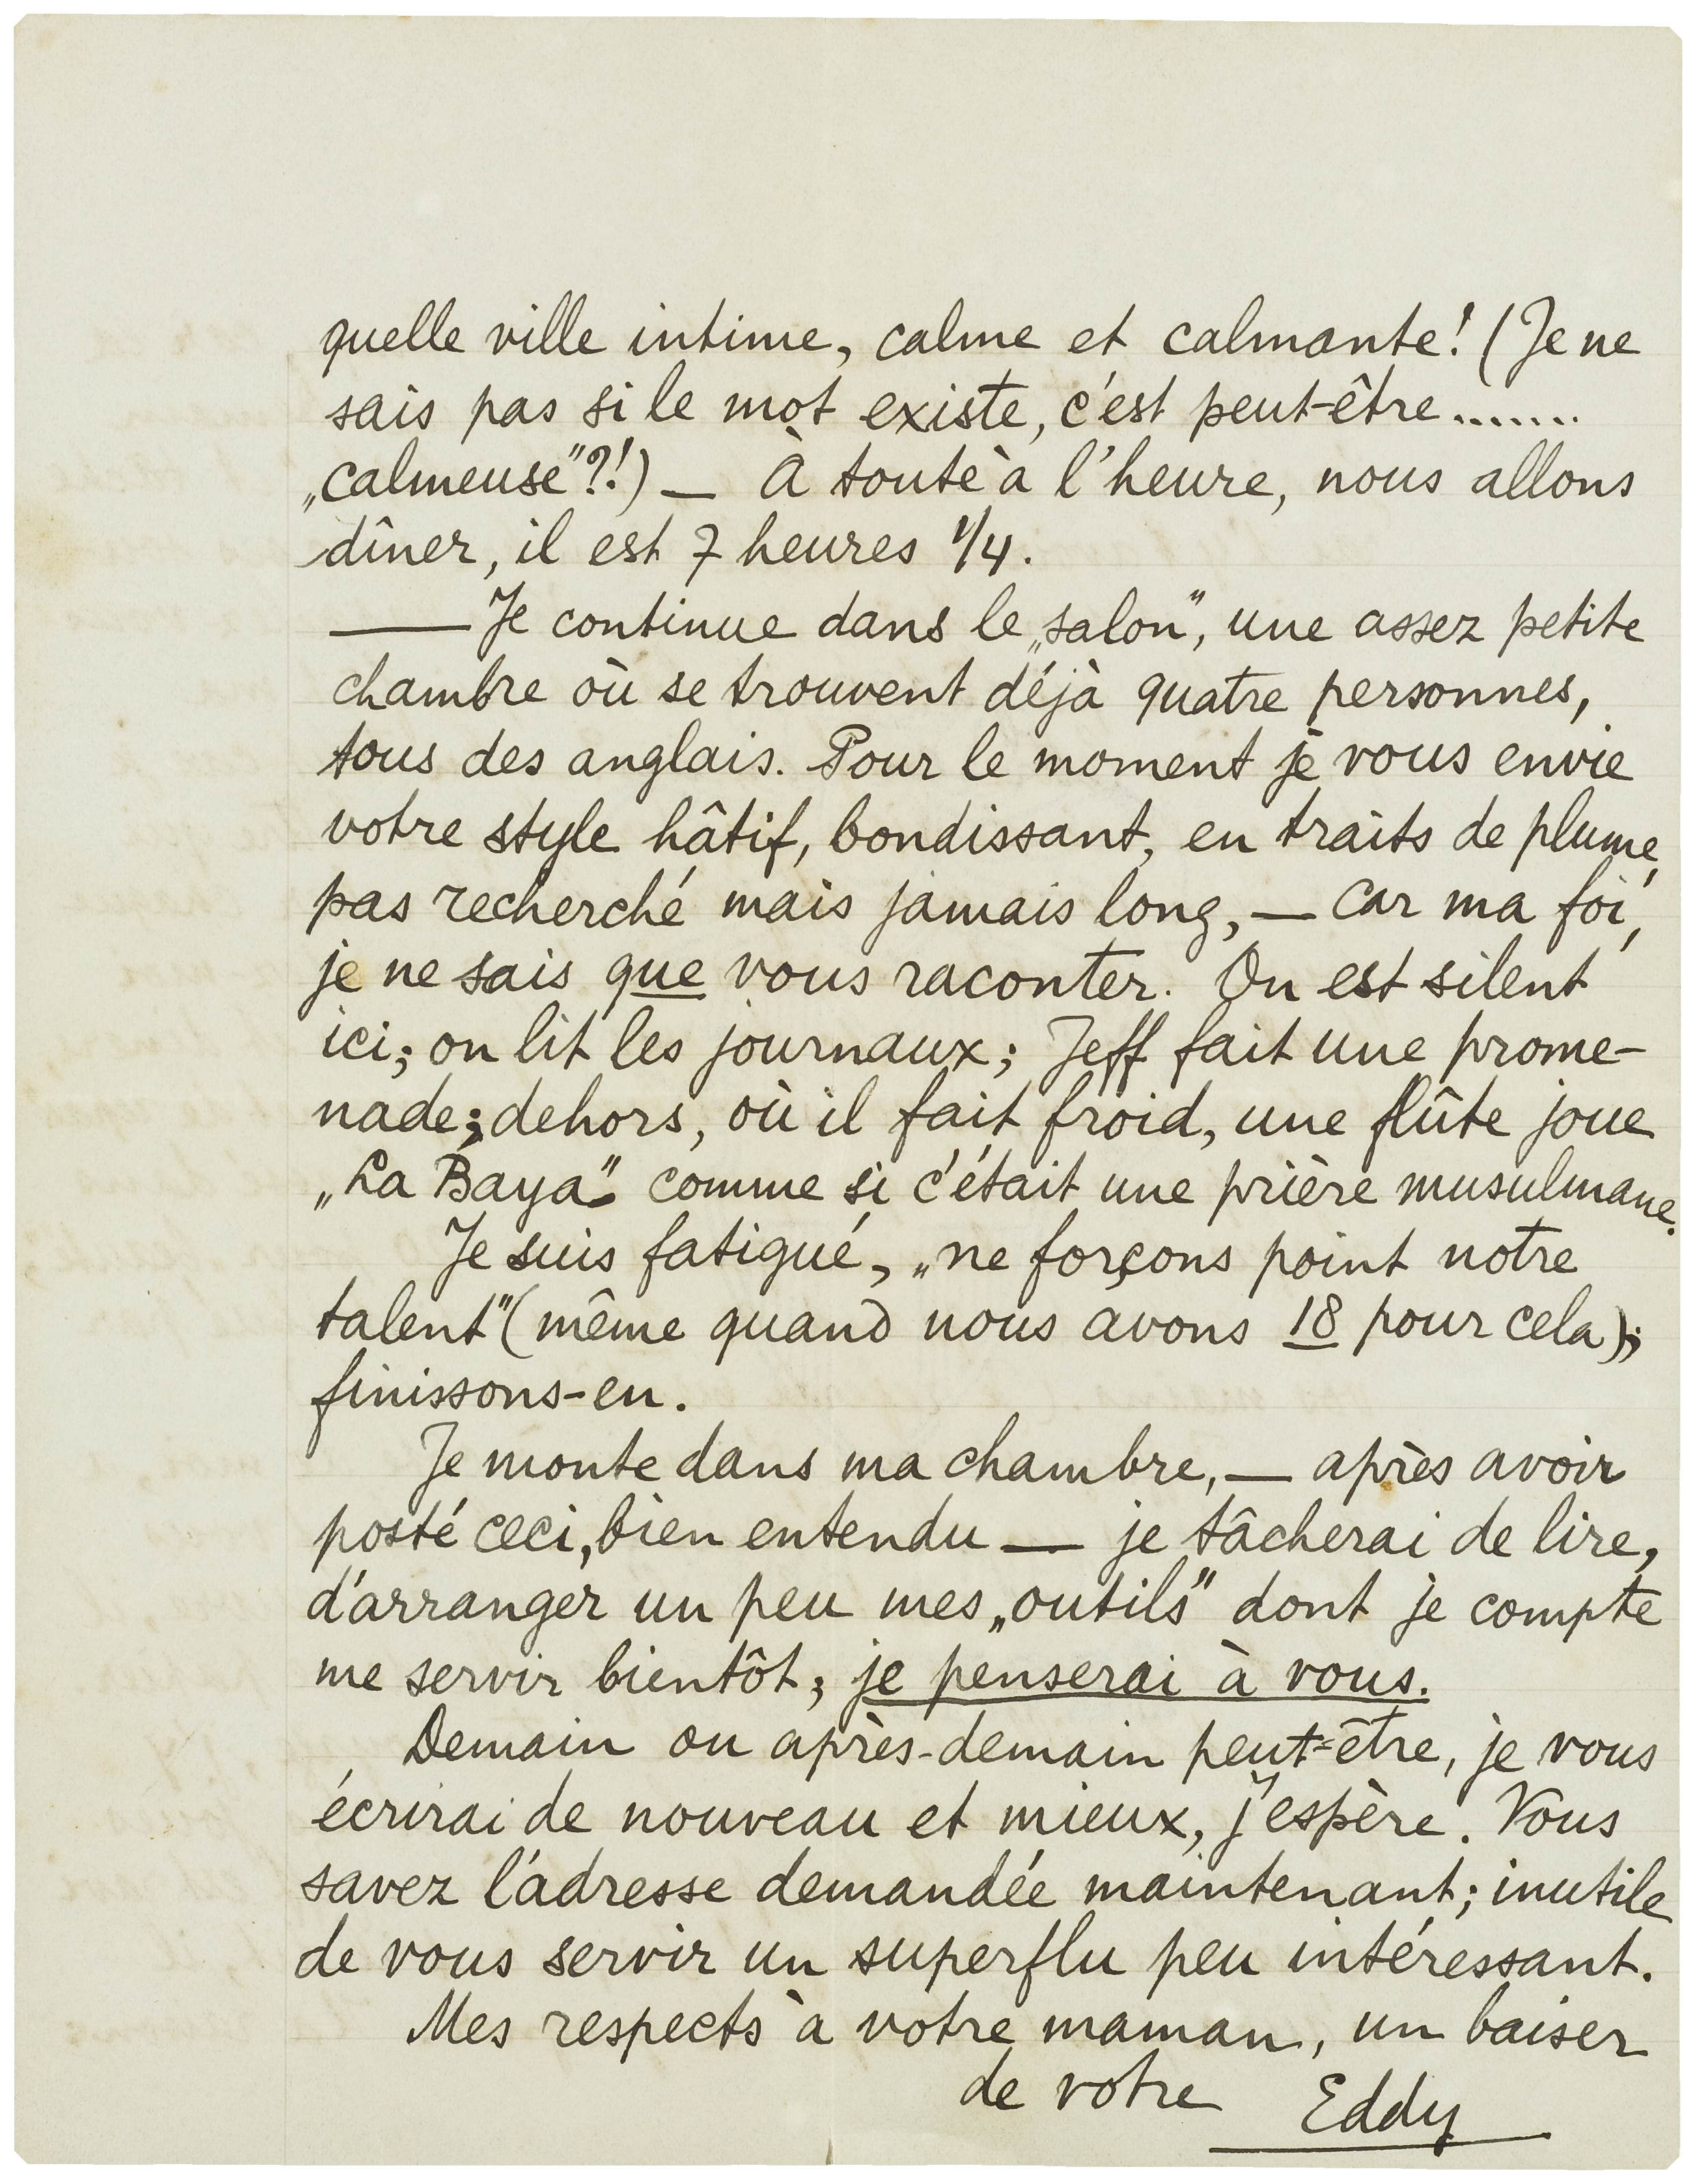 quelle ville intime, calme et calmante! (Je ne
sais pas si le mot existe, c'est peut-être.......
„calmeuse"?!) — À toute à l'heure, nous allons
dîner, il est 7 heures 1/4.
—— Je continue dans le „salon", une assez petite
chambre où se trouvent déjà quatre personnes,
tous des anglais. Pour le moment je vous envie
votre style hâtif, bondissant, en traits de plume,
pas recherché mais jamais long, — car ma foi,
je ne sais que vous raconter. On est silent
ici; on lit les journaux; Jeff fait une prome-
nade; dehors, où il fait froid, une flûte joue
„La Baya" comme si c'était une prière musulmane.
Je suis fatigué, „ne forçons point notre
talent" (même quand nous avons 18 pour cela);
finissons-en.
Je monte dans ma chambre, — après avoir
posté ceci, bien entendu — je tâcherai de lire,
d'arranger un peu mes „outils" dont je compte
me servir bientôt; je penserai à vous.
Demain ou après-demain peut-être, je vous
écrirai de nouveau et mieux, j'espère. Vous
savez l'adresse demandée maintenant; inutile
de vous servir un superflu peu intéressant.
Mes respects à votre maman, un baiser
de votre Eddy